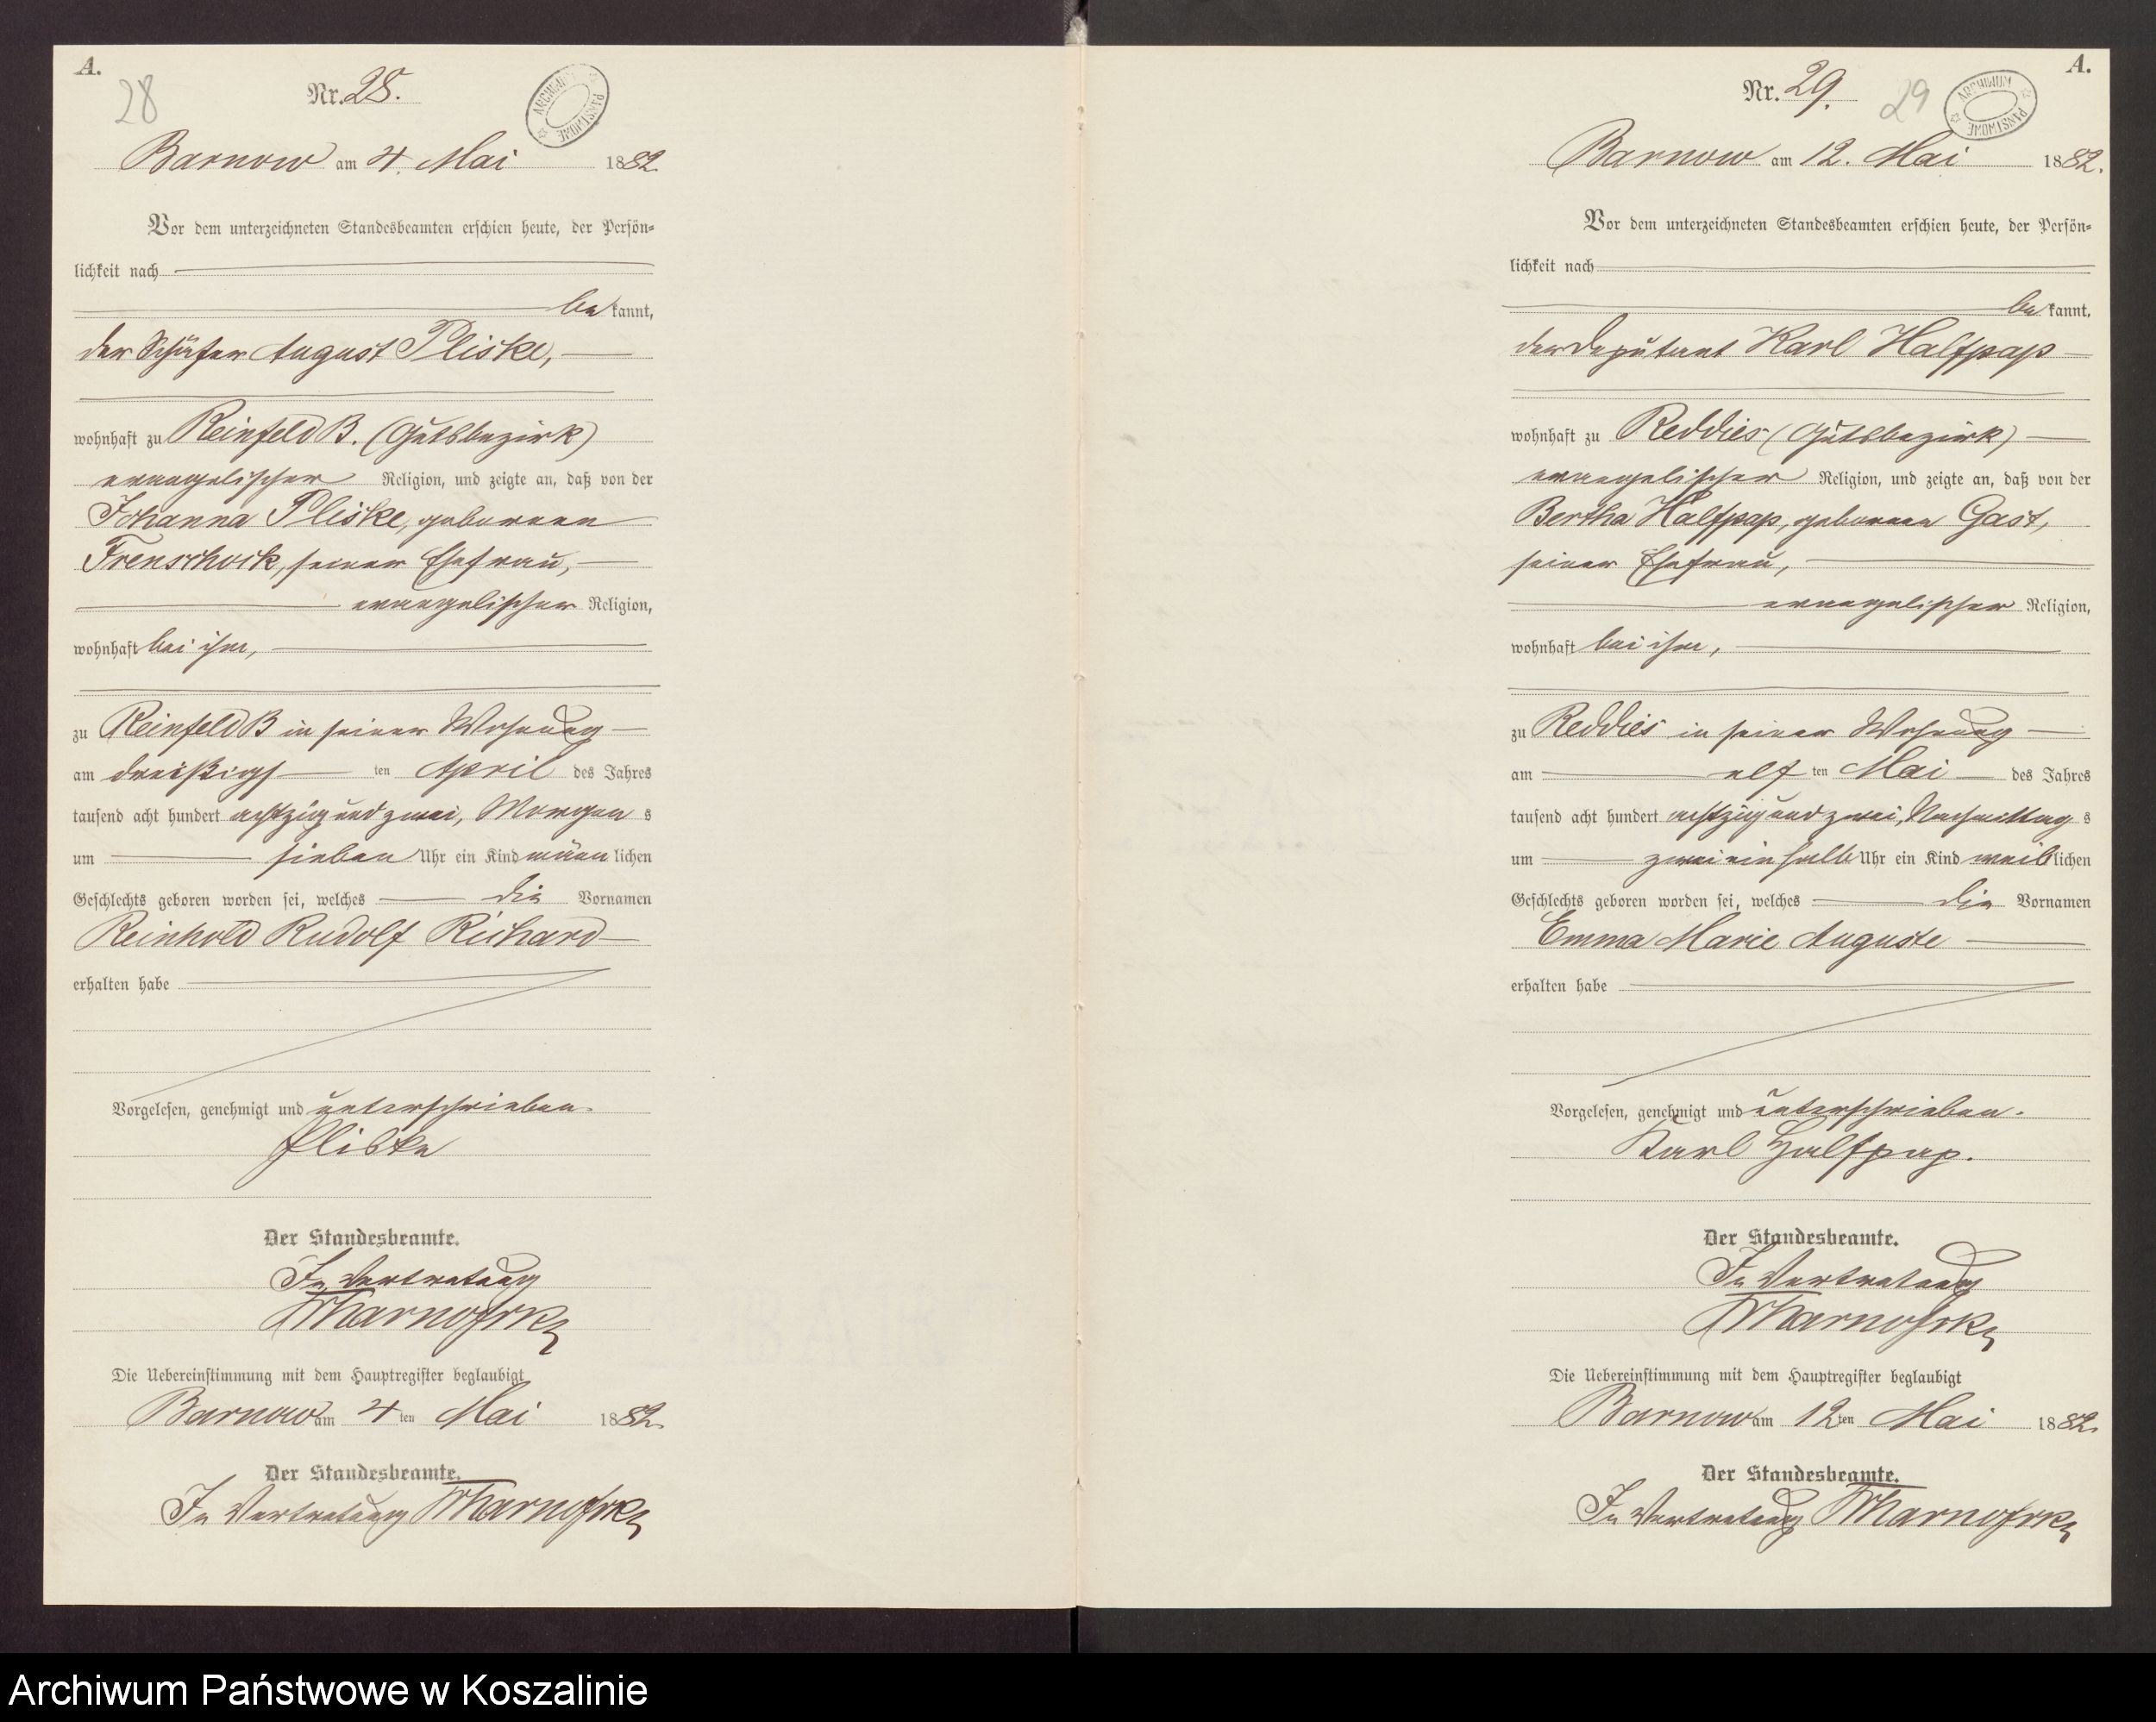 A.
28
Nr. 28.
ARCHIWUM PAŃSTWOWE
Barnow am 4. Mai 1882.
Vor dem unterzeichneten Standesbeamten erschien heute, der Persön-
lichkeit nach
bekannt,
der Schäfer August Pliske,
wohnhaft zu Reinfeld B. (Gutsbezirk)
evangelischer Religion, und zeigte an, daß von der
Johanna Pliske, geborenen
Frenschock, seiner Ehefrau,
evangelischer Religion,
wohnhaft bei ihm,
zu Reinfeld B in seiner Wohnung
am dreißigsten April des Jahres
tausend acht hundert achtzig und zwei, Morgens
um sieben Uhr ein Kind männlichen
Geschlechts geboren worden sei, welches die Vornamen
Reinhold Rudolf Richard
erhalten habe
Vorgelesen, genehmigt und unterschrieben.
Pliske
Der Standesbeamte.
In Vertretung
Die Uebereinstimmung mit dem Hauptregister beglaubigt
Barnow am 4ten Mai 1882.
Der Standesbeamte.
In Vertretung
A.
Nr. 29.
29
ARCHIWUM PAŃSTWOWE
Barnow am 12. Mai 1882.
Vor dem unterzeichneten Standesbeamten erschien heute, der Persön-
lichkeit nach
bekannt,
der Deputant Karl Halfpap
wohnhaft zu Reddies (Gutsbezirk)
evangelischer Religion, und zeigte an, daß von der
Bertha Halfpap, geborenen Gast,
seiner Ehefrau,
evangelischer Religion,
wohnhaft bei ihm,
zu Reddies in seiner Wohnung
am elften Mai des Jahres
tausend acht hundert achtzig und zwei, Nachmittags
um zwei ein halb Uhr ein Kind weiblichen
Geschlechts geboren worden sei, welches die Vornamen
Emma Marie Auguste
erhalten habe
Vorgelesen, genehmigt und unterschrieben.
Karl Halfpap.
Der Standesbeamte.
In Vertretung
Die Uebereinstimmung mit dem Hauptregister beglaubigt
Barnow am 12ten Mai 1882.
Der Standesbeamte.
In Vertretung
Archiwum Państwowe w Koszalinie